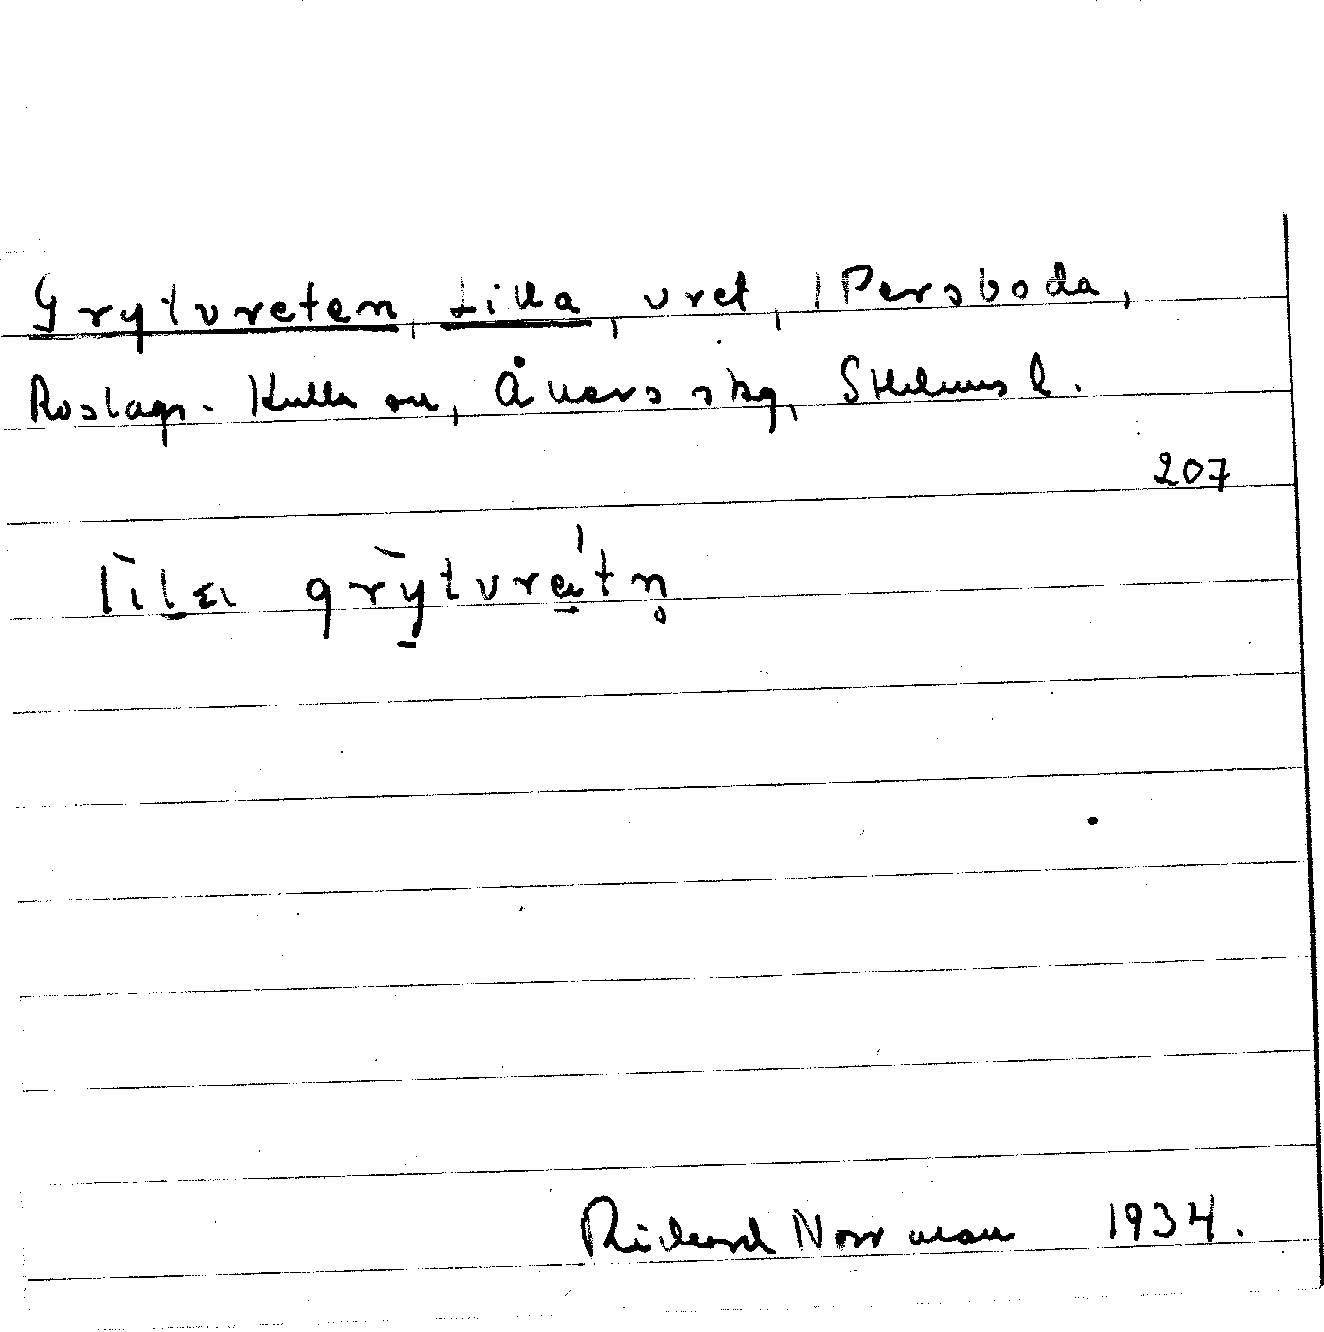 Grytvreten, Lilla, vret, Persboda,
Roslags-Kulla sn, Åkers skg, Sthlms l.
207
grytvretn̥
Rickard Norrman 1934.